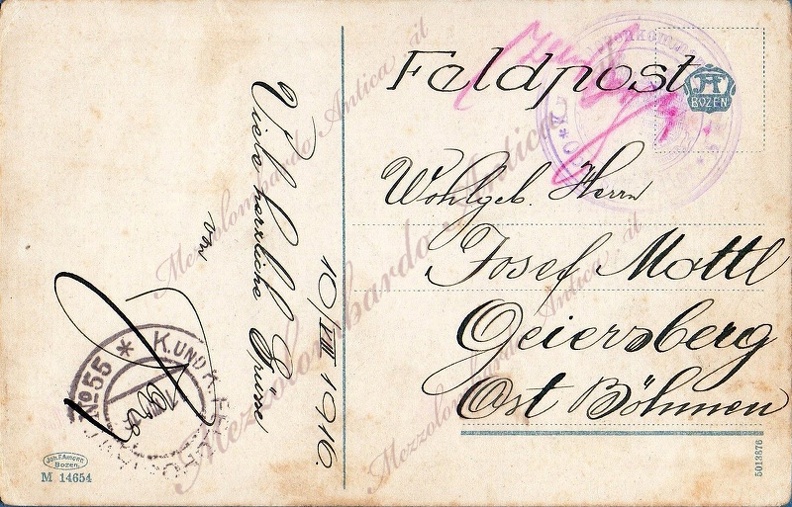 Feldpost
BOZEN
Wohlgeb. Herrn
Josef Mottl
Geiersberg
Ost Böhmen
10/VIII 1916.
Viele herzliche Grüsse
von
K. UND K.
No 55 *
Joh. F. Amonn
Bozen.
M 14654
5013876
Mezzolombardo Antica
Mezzolombardo Antica
Mezzolombardo Antica